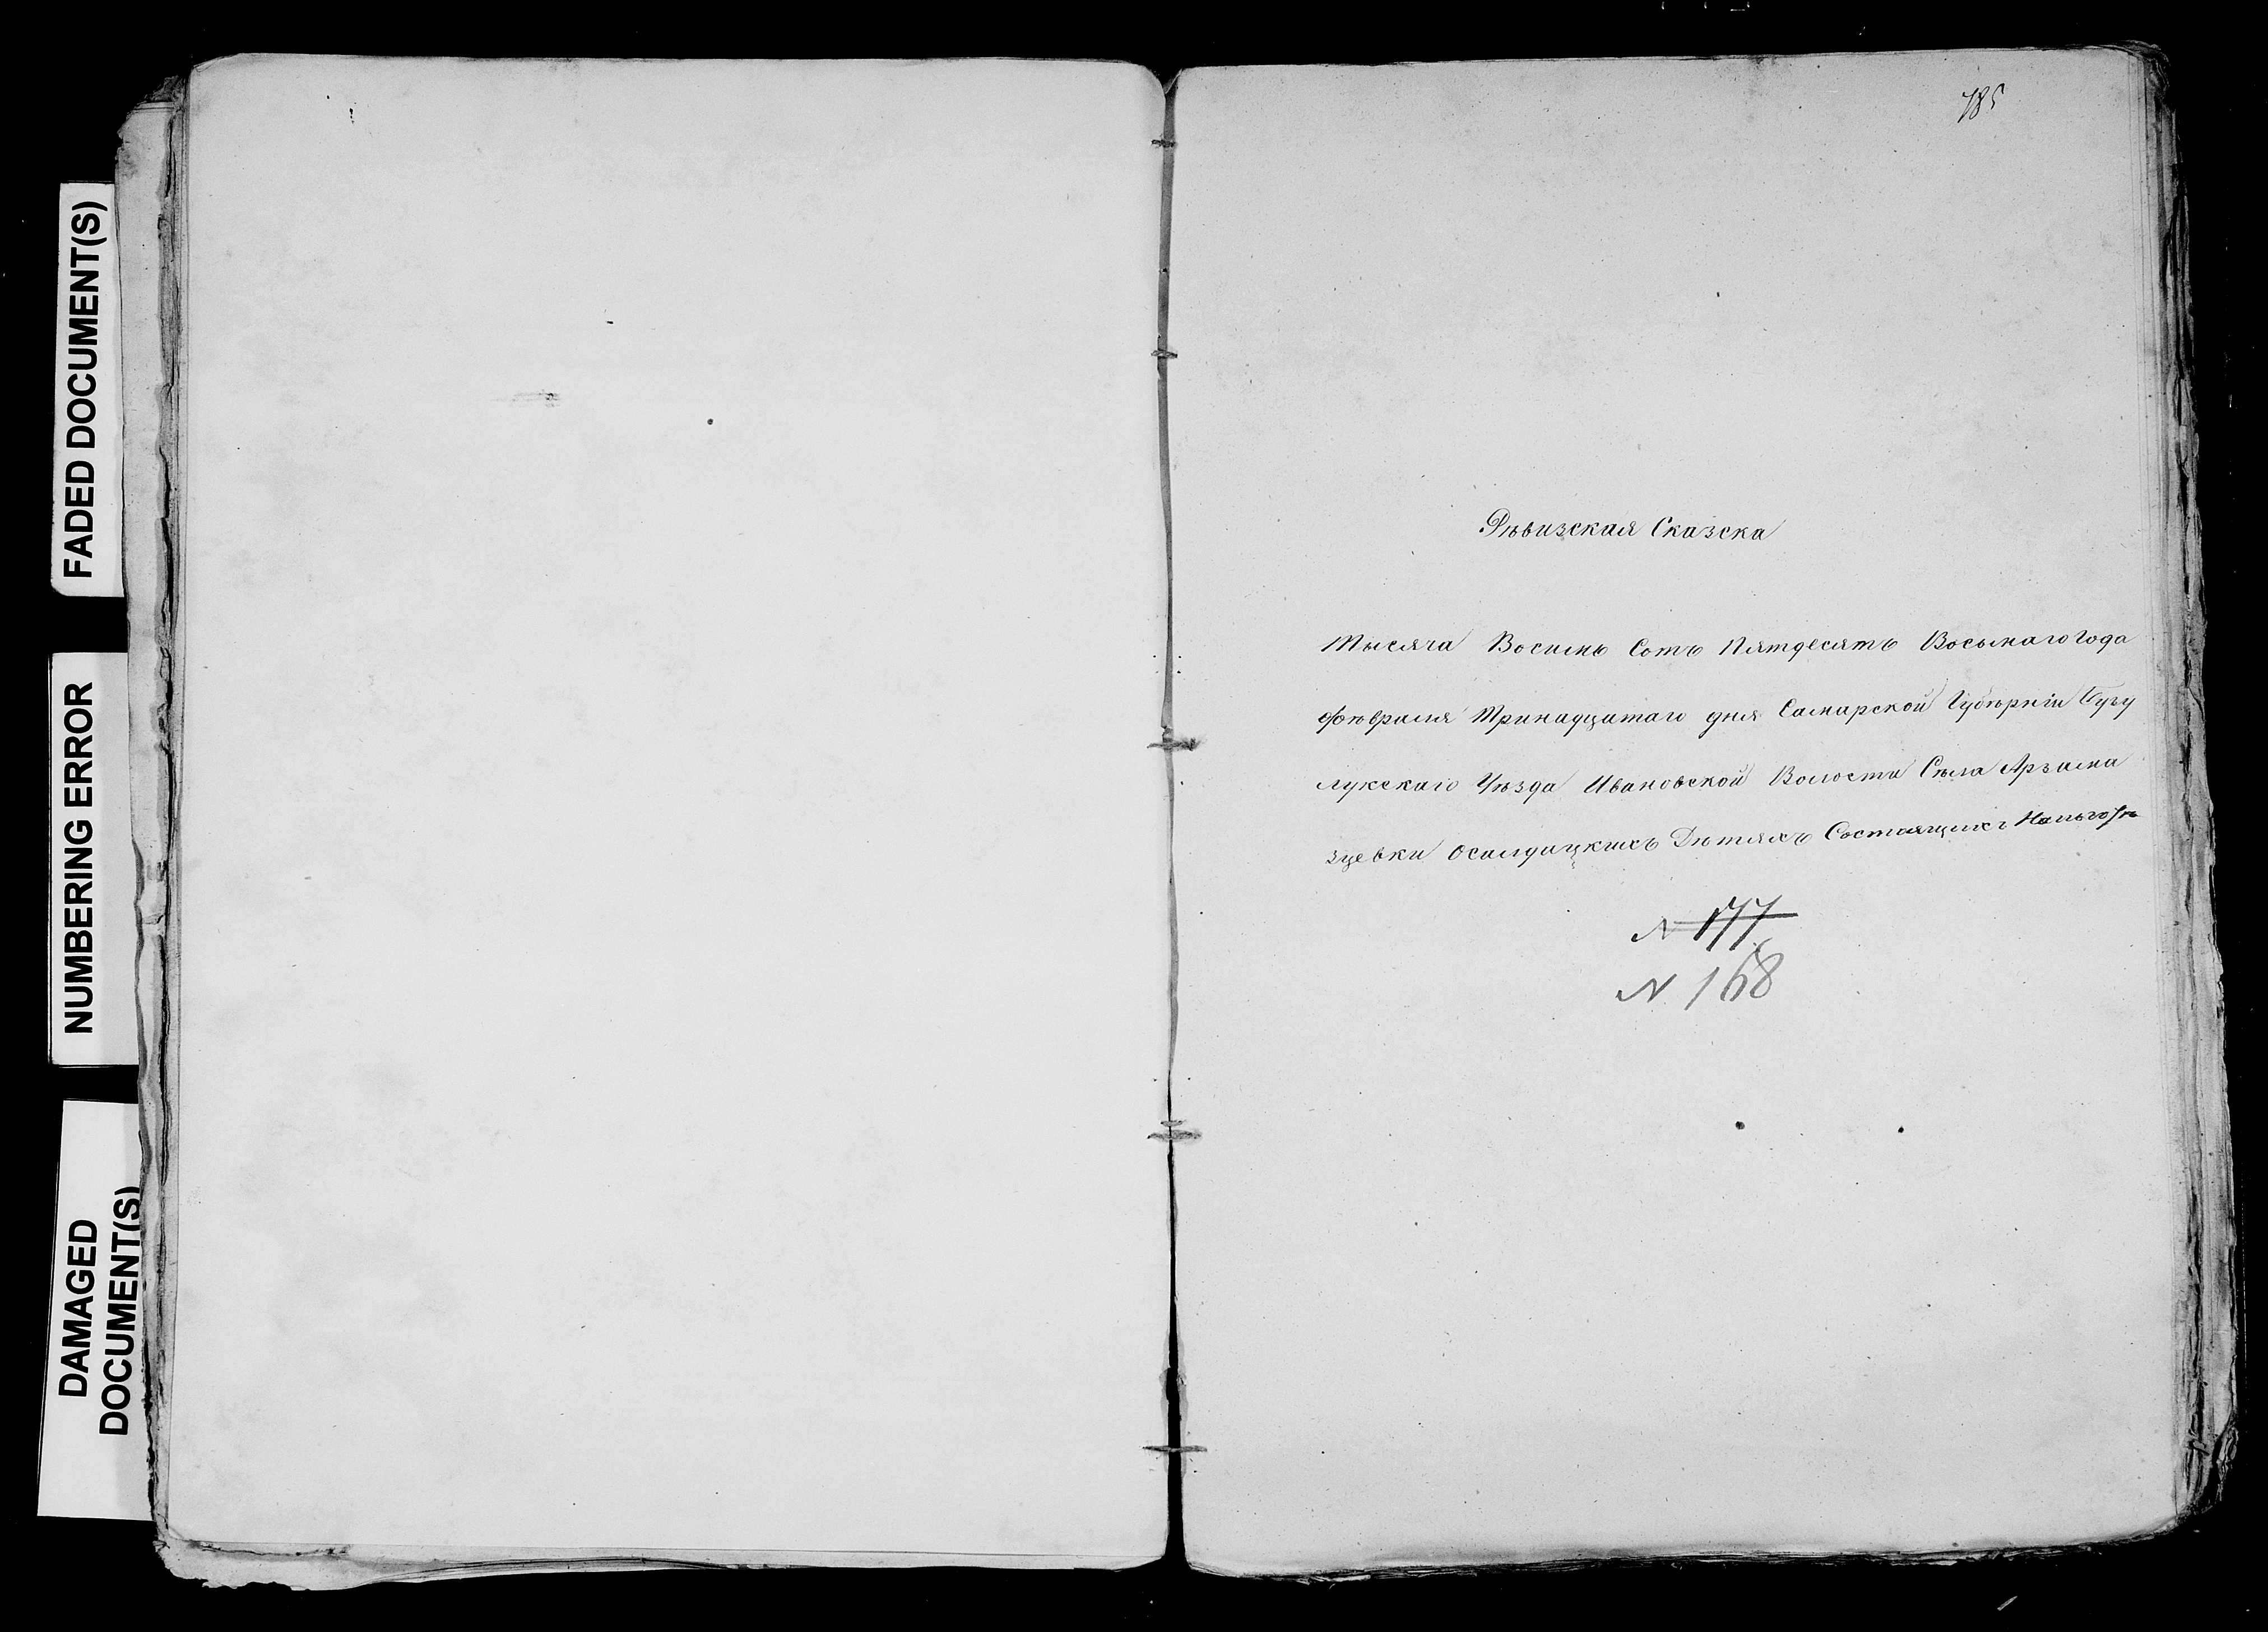 FADED DOCUMENT(S)
NUMBERING ERROR
DAMAGED
DOCUMENT(S)
785
Рѣвизская Сказска
Тысяча Восимь Сотъ Пятдесятъ Восьмаго Года
Фѣвраля Тринадцатаго дня Самарской Губѣрнiи Бугу
лукскаго Уѣзда Ивановской Волости Сѣла Арзама
зцевки Осалдацкихъ Дѣтяхъ Состоящихъ
N 177
N 168